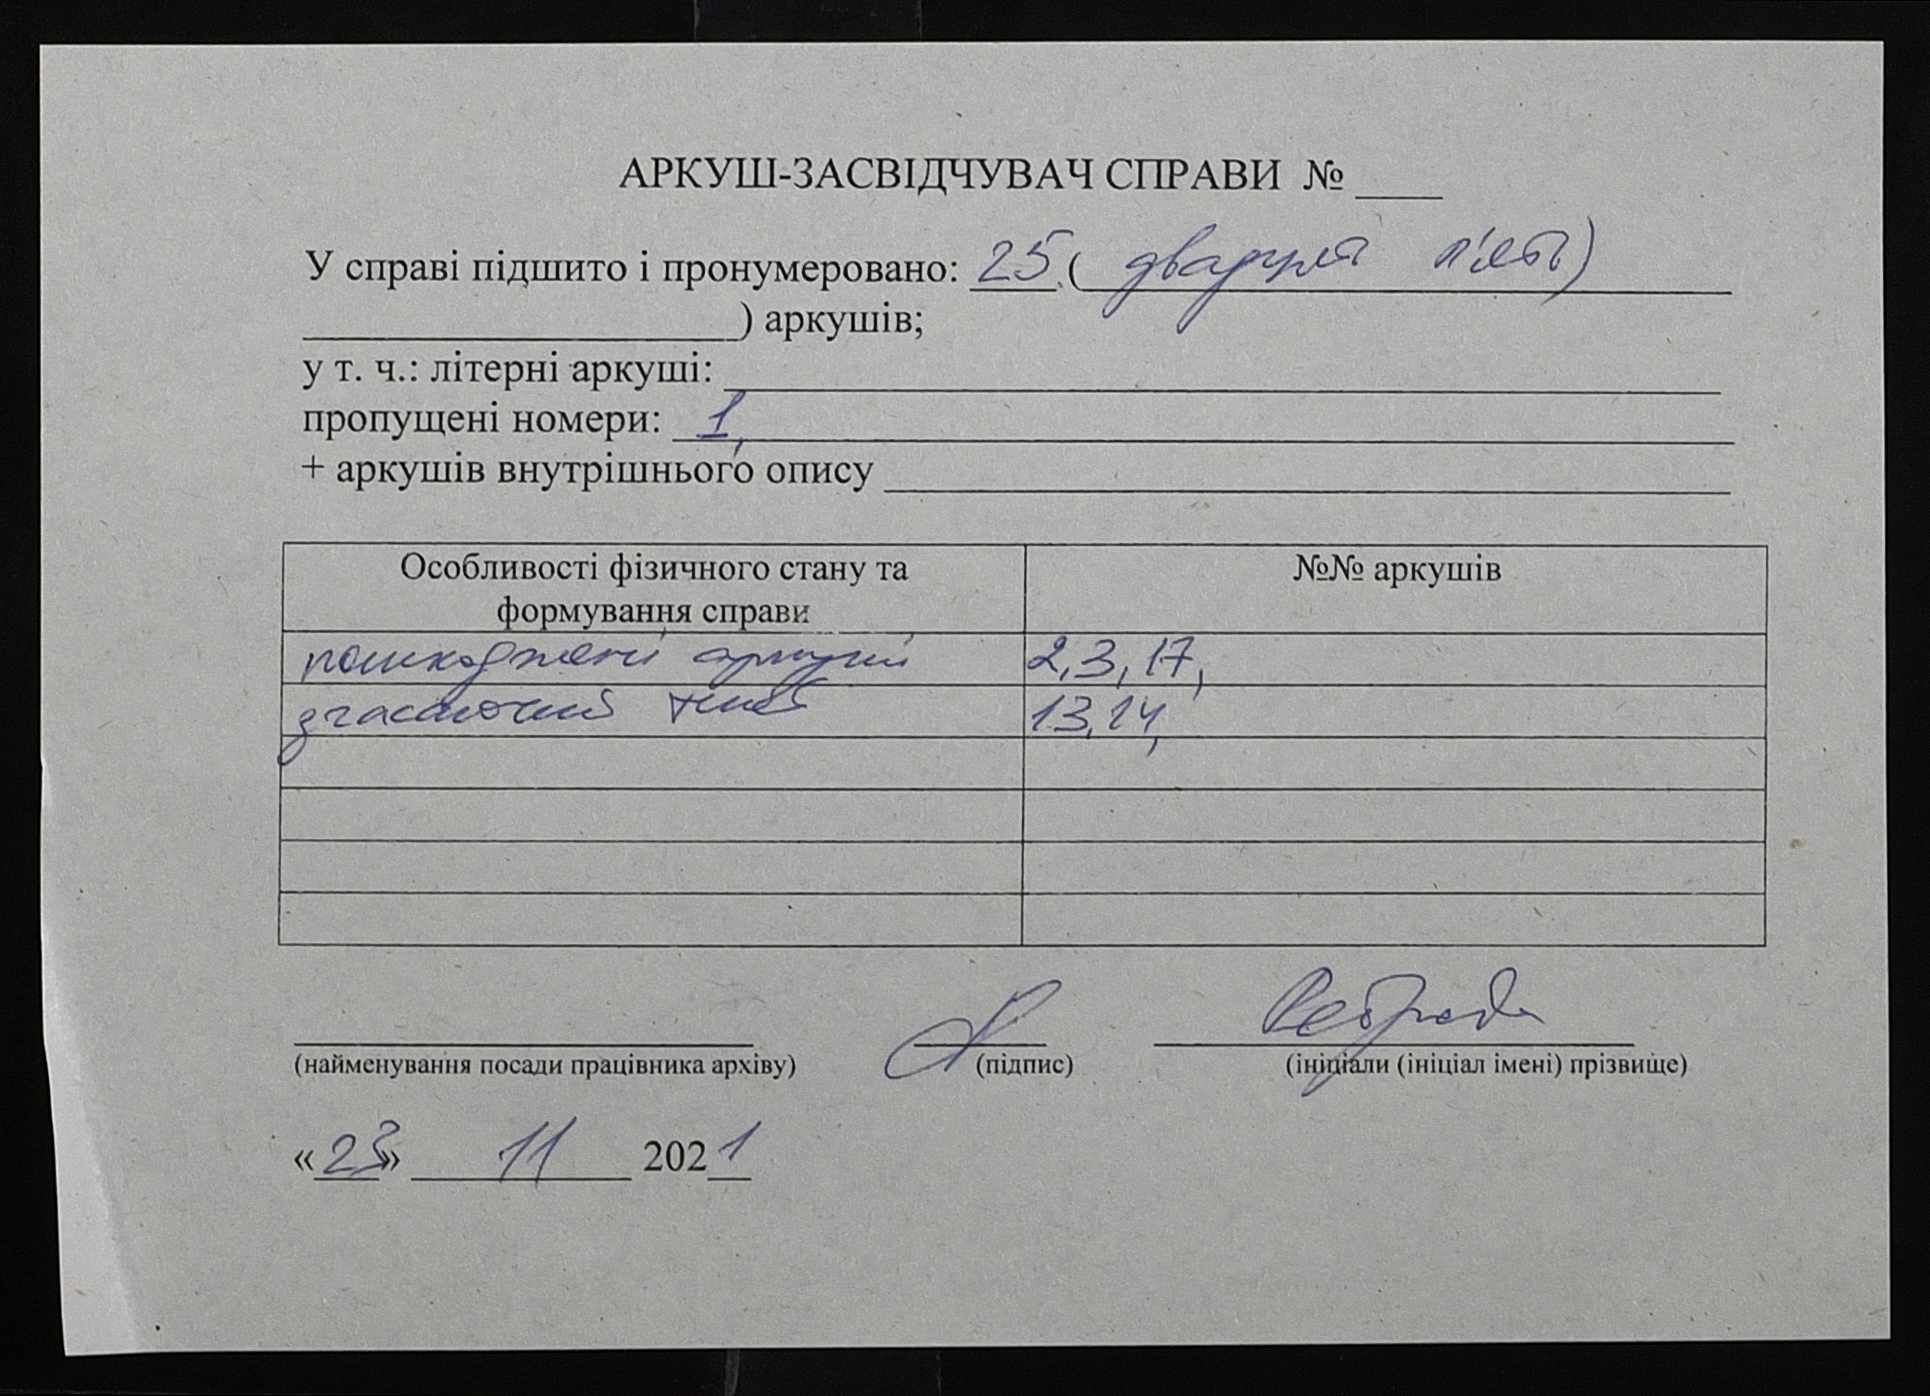 АРКУШ-ЗАСВІДЧУВАЧ СПРАВИ № ____
У справі підшито і пронумеровано: 25 ( двадцять п'ять)
____________________) аркушів;
у т. ч.: літерні аркуші: ____
пропущені номери: 1,
+ аркушів внутрішнього опису ____
Особливості фізичного стану та формування справи
№№ аркушів
пошкоджені аркуші 2,3,17,
згасаючий текст 13,14,
(найменування посади працівника архіву) (підпис) (ініціали (ініціал імені) прізвище)
«23» 11 2021